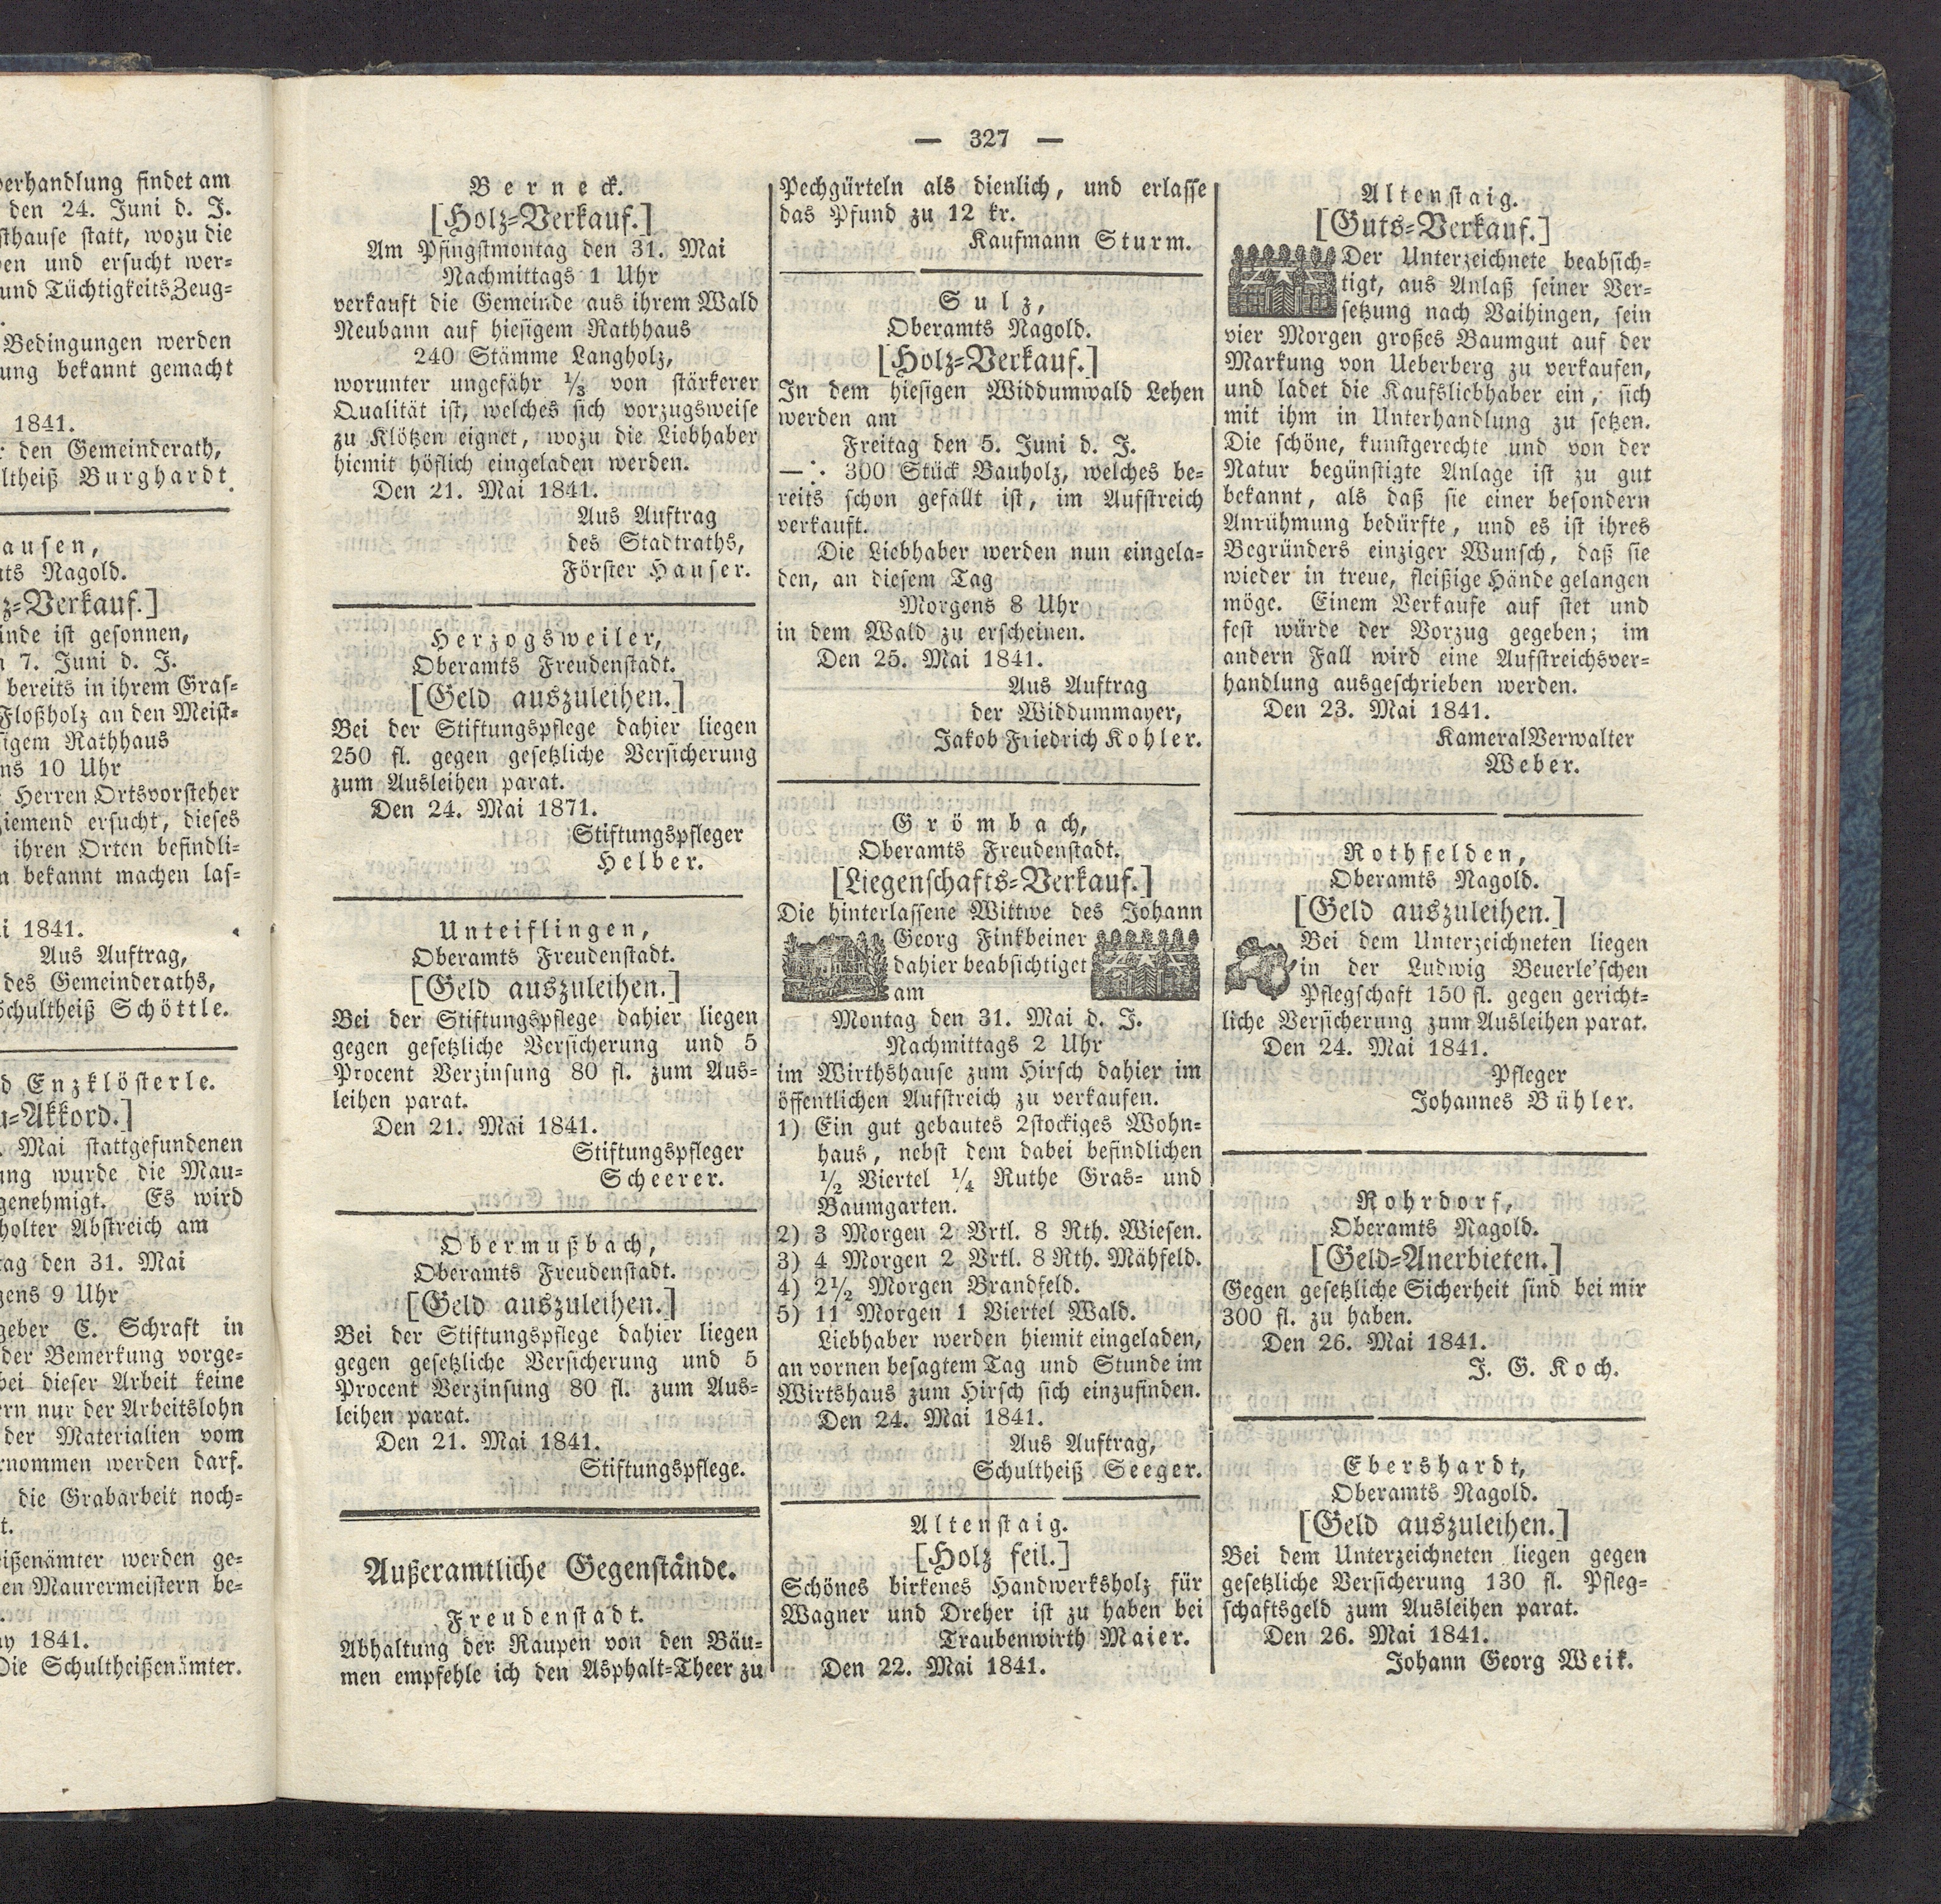 verhandlung findet am
den 24. Juni d. J.
sthause statt, wozu die
ben und ersucht wer-
und TüchtigkeitsZeug-
Bedingungen werden
ung bekannt gemacht
1841.
r den Gemeinderath,
ltheiß Burghardt.
ausen,
ts Nagold.
z-Verkauf.]
inde ist gesonnen,
n 7. Juni d. J.
bereits in ihrem Gras-
Floßholz an den Meist-
sigem Rathhaus
ns 10 Uhr
Herren Ortsvorsteher
ziemend ersucht, dieses
ihren Orten befindli-
n bekannt machen las-
i 1841.
Aus Auftrag,
des Gemeinderaths,
Schultheiß Schöttle.
d Enzklösterle.
u-Akkord.]
. Mai stattgefundenen
ung wurde die Mau-
genehmigt. Es wird
holter Abstreich am
tag den 31. Mai
gens 9 Uhr
geber E. Schraft in
der Bemerkung vorge-
bei dieser Arbeit keine
ern nur der Arbeitslohn
der Materialien vom
rnommen werden darf.
die Grabarbeit noch-
t.
ißenämter werden ge-
en Maurermeistern be-
ay 1841.
Die Schultheißenämter.
— 327 —
Berneck.
[Holz-Verkauf.]
Am Pfingstmontag den 31. Mai
Nachmittags 1 Uhr
verkauft die Gemeinde aus ihrem Wald
Neubann auf hiesigem Rathhaus
240 Stämme Langholz,
worunter ungefähr 1/3 von stärkerer
Qualität ist, welches sich vorzugsweise
zu Klötzen eignet, wozu die Liebhaber
hiemit höflich eingeladen werden.
Den 21. Mai 1841.
Aus Auftrag
des Stadtraths,
Förster Hauser.
Herzogsweiler,
Oberamts Freudenstadt.
[Geld auszuleihen.]
Bei der Stiftungspflege dahier liegen
250 fl. gegen gesetzliche Versicherung
zum Ausleihen parat.
Den 24. Mai 1871.
Stiftungspfleger
Helber.
Unteiflingen,
Oberamts Freudenstadt.
[Geld auszuleihen.]
Bei der Stiftungspflege dahier liegen
gegen gesetzliche Versicherung und 5
Procent Verzinsung 80 fl. zum Aus-
leihen parat.
Den 21. Mai 1841.
Stiftungspfleger
Scheerer.
Obermußbach,
Oberamts Freudenstadt.
[Geld auszuleihen.]
Bei der Stiftungspflege dahier liegen
gegen gesetzliche Versicherung und 5
Procent Verzinsung 80 fl. zum Aus-
leihen parat.
Den 21. Mai 1841.
Stiftungspflege.
Außeramtliche Gegenstände.
Freudenstadt.
Abhaltung der Raupen von den Bäu-
men empfehle ich den Asphalt-Theer zu
Pechgürteln als dienlich, und erlasse
das Pfund zu 12 kr.
Kaufmann Sturm.
Sulz,
Oberamts Nagold.
[Holz-Verkauf.]
In dem hiesigen Widdumwald Lehen
werden am
Freitag den 5. Juni d. J.
—∴ 300 Stück Bauholz, welches be-
reits schon gefällt ist, im Aufstreich
verkauft.
Die Liebhaber werden nun eingela-
den, an diesem Tag
Morgens 8 Uhr
in dem Wald zu erscheinen.
Den 25. Mai 1841.
Aus Auftrag
der Widdummayer,
Jakob Friedrich Kohler.
Grömbach,
Oberamts Freudenstadt.
[Liegenschafts-Verkauf.]
Die hinterlassene Wittwe des Johann
Georg Finkbeiner
dahier beabsichtiget
am
Montag den 31. Mai d. J.
Nachmittags 2 Uhr
im Wirthshause zum Hirsch dahier im
öffentlichen Aufstreich zu verkaufen.
1) Ein gut gebautes 2stockiges Wohn-
haus, nebst dem dabei befindlichen
1/2 Viertel 1/4 Ruthe Gras- und
Baumgarten.
2) 3 Morgen 2 Vrtl. 8 Rth. Wiesen.
3) 4 Morgen 2 Vrtl. 8 Rth. Mähfeld.
4) 2 1/2 Morgen Brandfeld.
5) 11 Morgen 1 Viertel Wald.
Liebhaber werden hiemit eingeladen,
an vornen besagtem Tag und Stunde im
Wirtshaus zum Hirsch sich einzufinden.
Den 24. Mai 1841.
Aus Auftrag,
Schultheiß Seeger.
Altenstaig.
[Holz feil.]
Schönes birkenes Handwerksholz für
Wagner und Dreher ist zu haben bei
Traubenwirth Maier.
Den 22. Mai 1841.
Altenstaig.
[Guts-Verkauf.]
Der Unterzeichnete beabsich-
tigt, aus Anlaß seiner Ver-
setzung nach Vaihingen, sein
vier Morgen großes Baumgut auf der
Markung von Ueberberg zu verkaufen,
und ladet die Kaufsliebhaber ein, sich
mit ihm in Unterhandlung zu setzen.
Die schöne, kunstgerechte und von der
Natur begünstigte Anlage ist zu gut
bekannt, als daß sie einer besondern
Anrühmung bedürfte, und es ist ihres
Begründers einziger Wunsch, daß sie
wieder in treue, fleißige Hände gelangen
möge. Einem Verkaufe auf stet und
fest würde der Vorzug gegeben; im
andern Fall wird eine Aufstreichsver-
handlung ausgeschrieben werden.
Den 23. Mai 1841.
KameralVerwalter
Weber.
Rothfelden,
Oberamts Nagold.
[Geld auszuleihen.]
Bei dem Unterzeichneten liegen
in der Ludwig Beuerle'schen
Pflegschaft 150 fl. gegen gericht-
liche Versicherung zum Ausleihen parat.
Den 24. Mai 1841.
Pfleger
Johannes Bühler.
Rohrdorf,
Oberamts Nagold.
[Geld-Anerbieten.]
Gegen gesetzliche Sicherheit sind bei mir
300 fl. zu haben.
Den 26. Mai 1841.
J. G. Koch.
Ebershardt,
Oberamts Nagold.
[Geld auszuleihen.]
Bei dem Unterzeichneten liegen gegen
gesetzliche Versicherung 130 fl. Pfleg-
schaftsgeld zum Ausleihen parat.
Den 26. Mai 1841.
Johann Georg Weik.